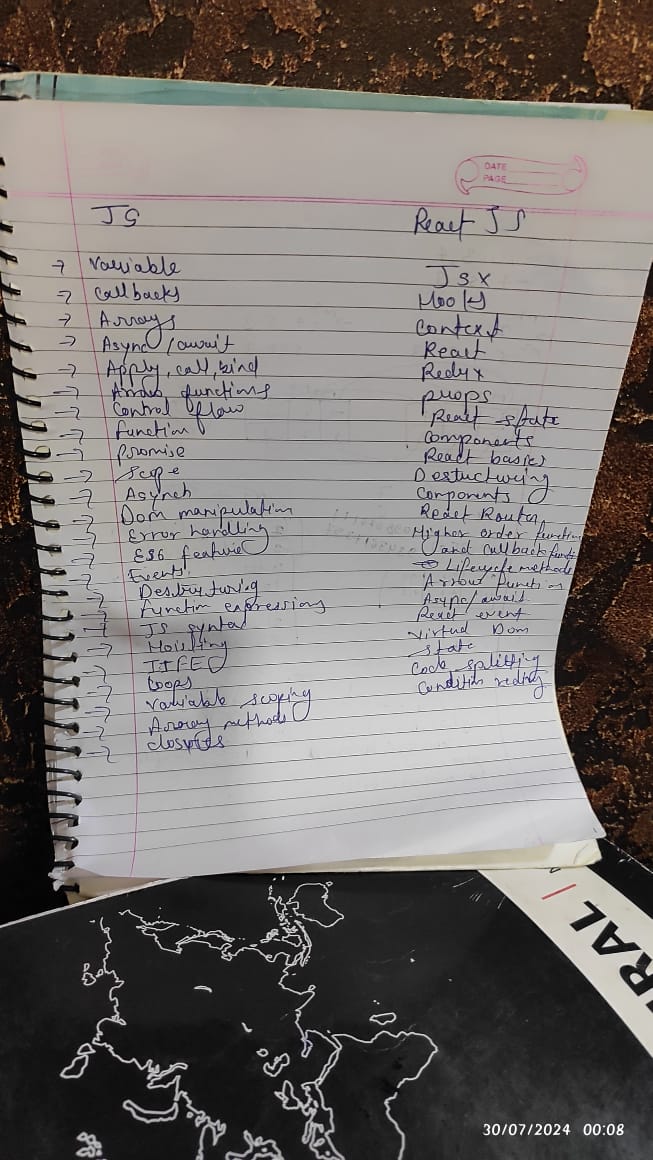 DATE
PAGE
JS
variable
callbacks
Arrays
Async / await
Apply, call, bind
Arrow functions
Control flow
function
promise
Scope
Asynch
Dom manipulation
Error handling
ES6 feature
Events
Destructuring
function expressions
JS syntax
Hoisting
IIFE
Loops
variable scoping
Array methods
closures
React JS
JSX
Hooks
Context
React
Redux
props
React state
components
React basics
Destucturing
Components
React Router
Higher order function
and callback functi
Lifecycle methods
Arrow function
Async/await
React event
Virtual Dom
state
Code splitting
Condition
RAL
30/07/2024 00:08